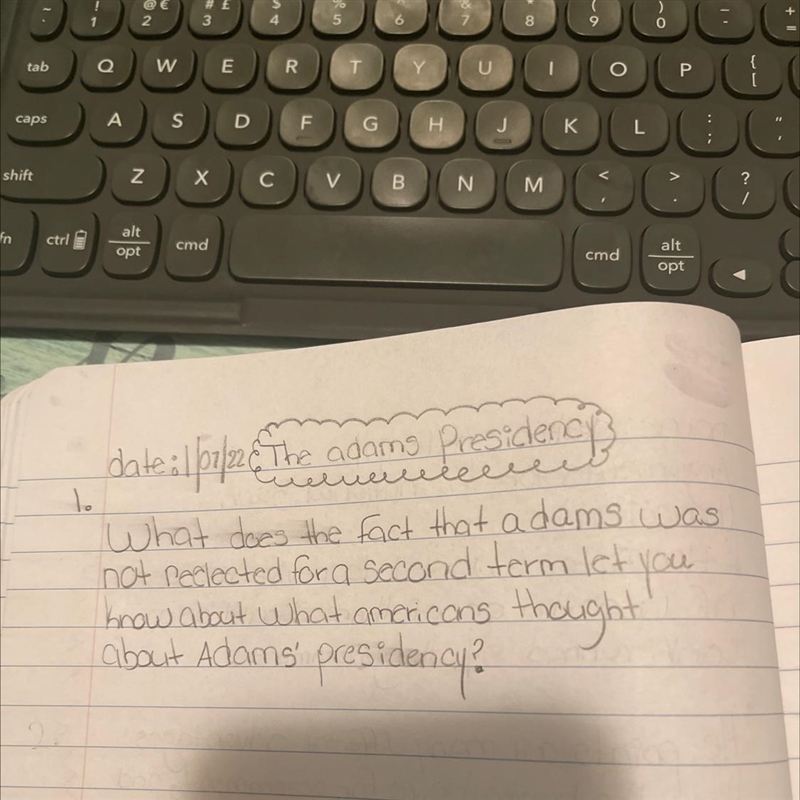 ~ ! @ € # £ $ % ^ & * ( ) _ +
` 1 2 3 4 5 6 7 8 9 0 - =
tab Q W E R T Y U I O P { [
caps A S D F G H J K L : ; " '
shift Z X C V B N M < , > . ? /
fn ctrl alt opt cmd cmd alt opt ◄
date:1/07/22 The adams Presidency
1.
What does the fact that adams was
not reelected for a second term let you
know about what americans thought
about Adams' presidency?